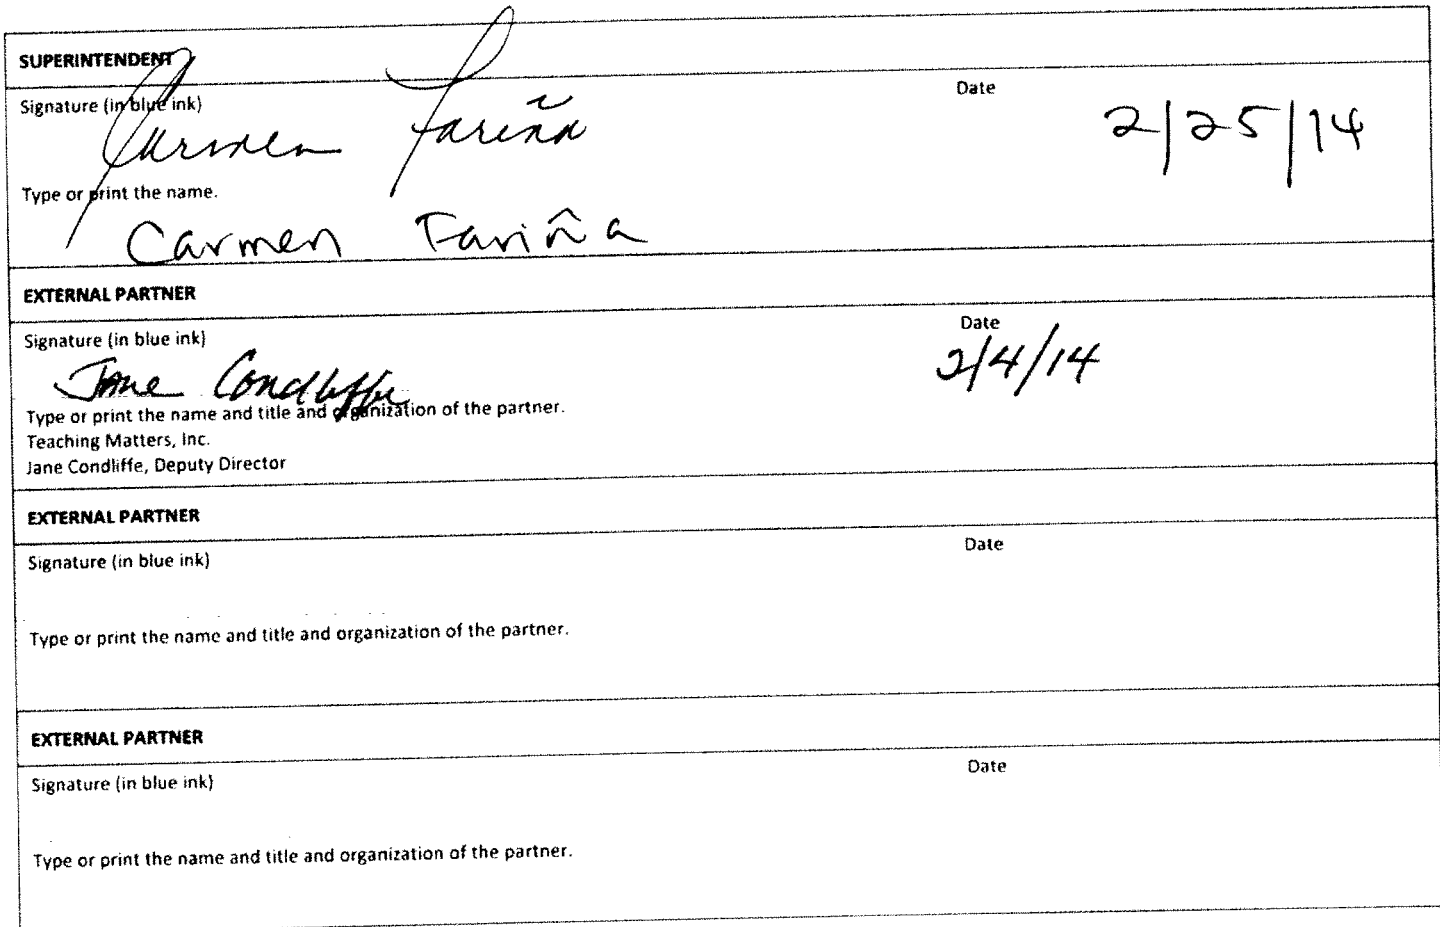 SUPERINTENDENT
Signature (in blue ink)
Date
Carmen Fariña
2/25/14
Type or print the name.
Carmen Fariña
EXTERNAL PARTNER
Signature (in blue ink)
Date
Jane Condliffe
2/4/14
Type or print the name and title and organization of the partner.
Teaching Matters, Inc.
Jane Condliffe, Deputy Director
EXTERNAL PARTNER
Signature (in blue ink)
Date
Type or print the name and title and organization of the partner.
EXTERNAL PARTNER
Signature (in blue ink)
Date
Type or print the name and title and organization of the partner.